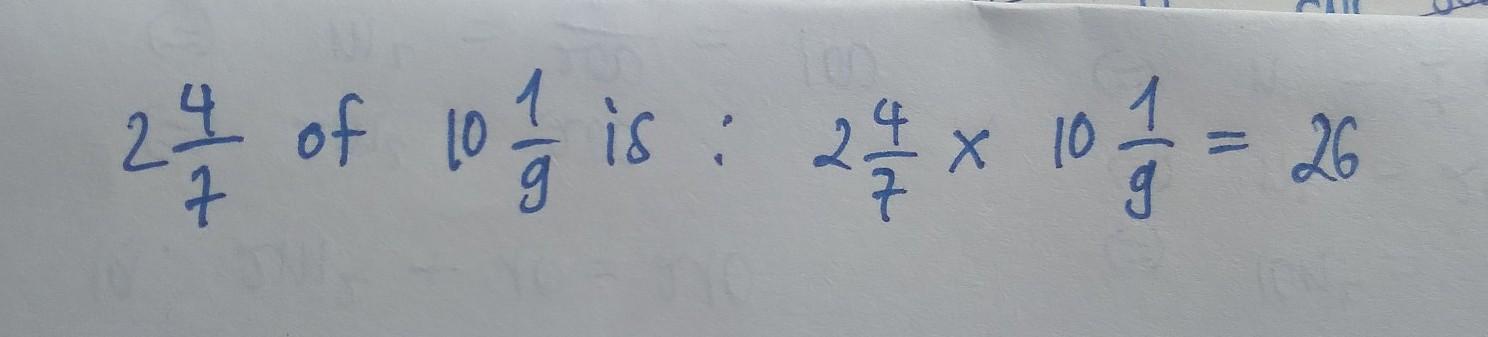 2 4/7 of 10 1/9 is : 2 4/7 x 10 1/9 = 26